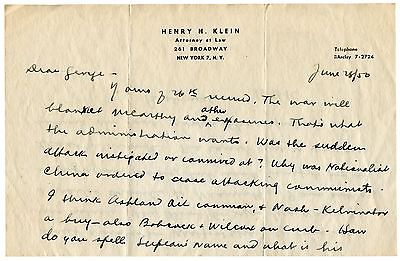 HENRY H. KLEIN
Attorney at Law
261 BROADWAY
NEW YORK 7, N.Y.
Telephone
BArclay 7-2724
June 28/50
Dear George -
Yours of 26th rec'd. The war will
other
blanket McCarthy and exposures. That's what
the administration wants. Was the sudden
attack instigated or connived at? Why was Nationalist
China ordered to cease attacking communists.
I think Ashland Oil common, & Nash-Kelvinator
a buy - also Babcock & Wilcox on curb. How
do you spell name and what is his